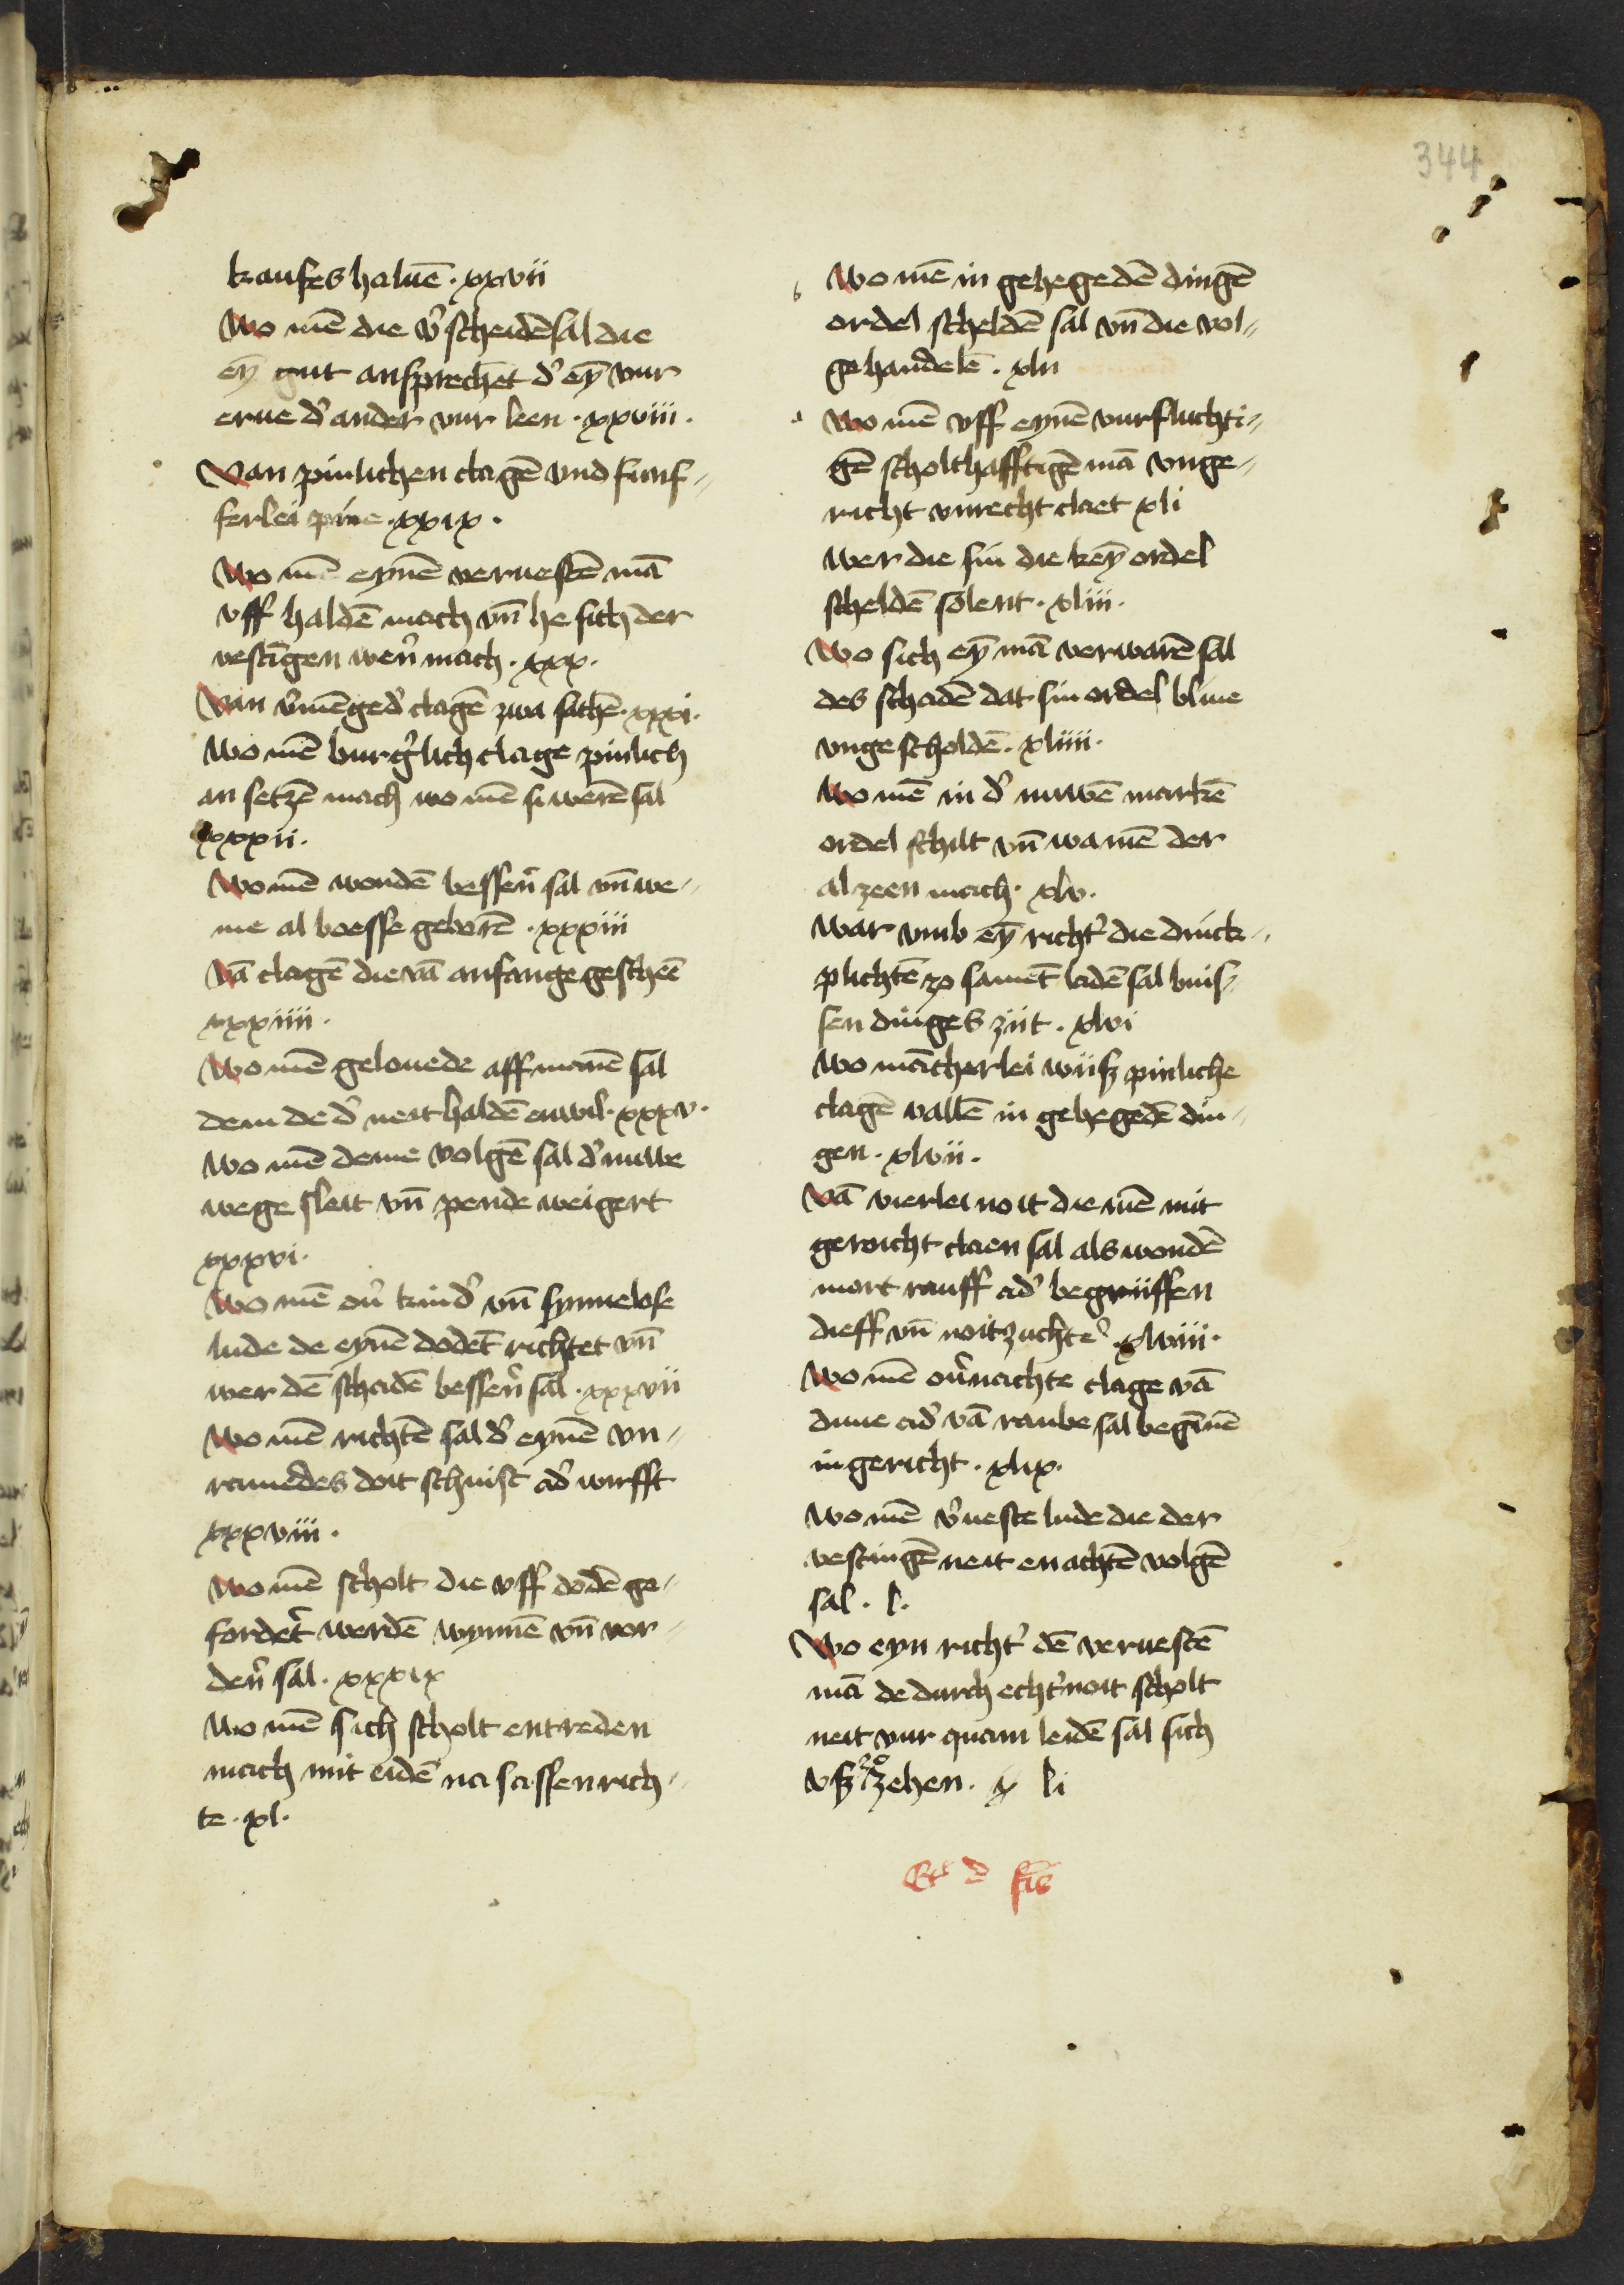 344
kaufes haluē · xxvii
Wo mē die v̓scheidē sal die
eȳ gut ansprechēt d̓ eȳ vur
erue d̓ ander vur leen · xxviii ·
Van pinlichen clagē vnd funf-
ferlei pine · xxix ·
Wo mē eynē veruestē mā
vff haldē mach vn̄ he sich der
vestīgen wer̓n mach · xxx ·
Van v̓mēged̓ clagē zwa sachē · xxxi ·
Wo mē burg̓lich clage pinlich
an setzē mach wo mē si werē sal
xxxii ·
Wo mē wondē besser̓n sal vn̄ we-
me al boesse geborē · xxxiii
Vā clagē die vā anfange gescheē
xxxiiii ·
Wo mē gelouede aff manē sal
dem de d̓ neit haldē enwil · xxxv ·
Wo mē deme volgē sal d̓ nuwe
wege sleit vn̄ pende weigert
xxxvi ·
Wo mē ou̓ kind̓ vn̄ synnelose
lude de eynē dodēt richtet vn̄
wer dē schadē besser̓n sal · xxxvii
Wo mē richtē sal d̓ eynē vn-
ramedes doit schuist ad̓ wirfft
xxxviii ·
Wo mē scholt die vff dodē ge-
fordet̓ werdē wynnē vn̄ vor-
der̓n sal · xxxix
Wo mē sich scholt entreden
mach mit eidē na sassen rich-
te · xl ·
Wo mē in gehegedē dingē
ordel scheldē sal vn̄ die vol-
gehandelē · xlii
Wo mē vff eynē vurfluchti-
gē scholthafftigē mā vnge-
richt vnrecht claet xli
Wer die sin die keȳ ordel
scheldē solent · xliii ·
Wo sich eȳ mā verwarē sal
des schadē dat sin ordel bliue
vngescholdē · xliiii ·
Wo mē in d̓ nuwē markē
ordel schilt vn̄ wa mē der
al zeen mach · xlv ·
War vmb eȳ richt̓ die dinck-
plichtē zo samēt ladē sal buis-
sen dinges ziit · xlvi
Wo mācherlei wiisz pinliche
clagē vallē in gehegedē din-
gen · xlvii ·
Vā vierlei noit die mē mit
geroicht claen sal als wondē
mort rauff ad̓ begriiffen
dieff vn̄ noitzuchte · xlviii ·
Wo mē ou̓nachte clage vā
duue ad̓ vā raube sal begīnē
in gericht · xlix ·
Wo mē v̓ueste lude die der
vestingē neit en achtē volgē
sal · l ·
Wo eyn richt̓ dē veruestē
mā de durch echt̓ noit scholt
neit vur quam leidē sal sich
vsz zo zehen · li